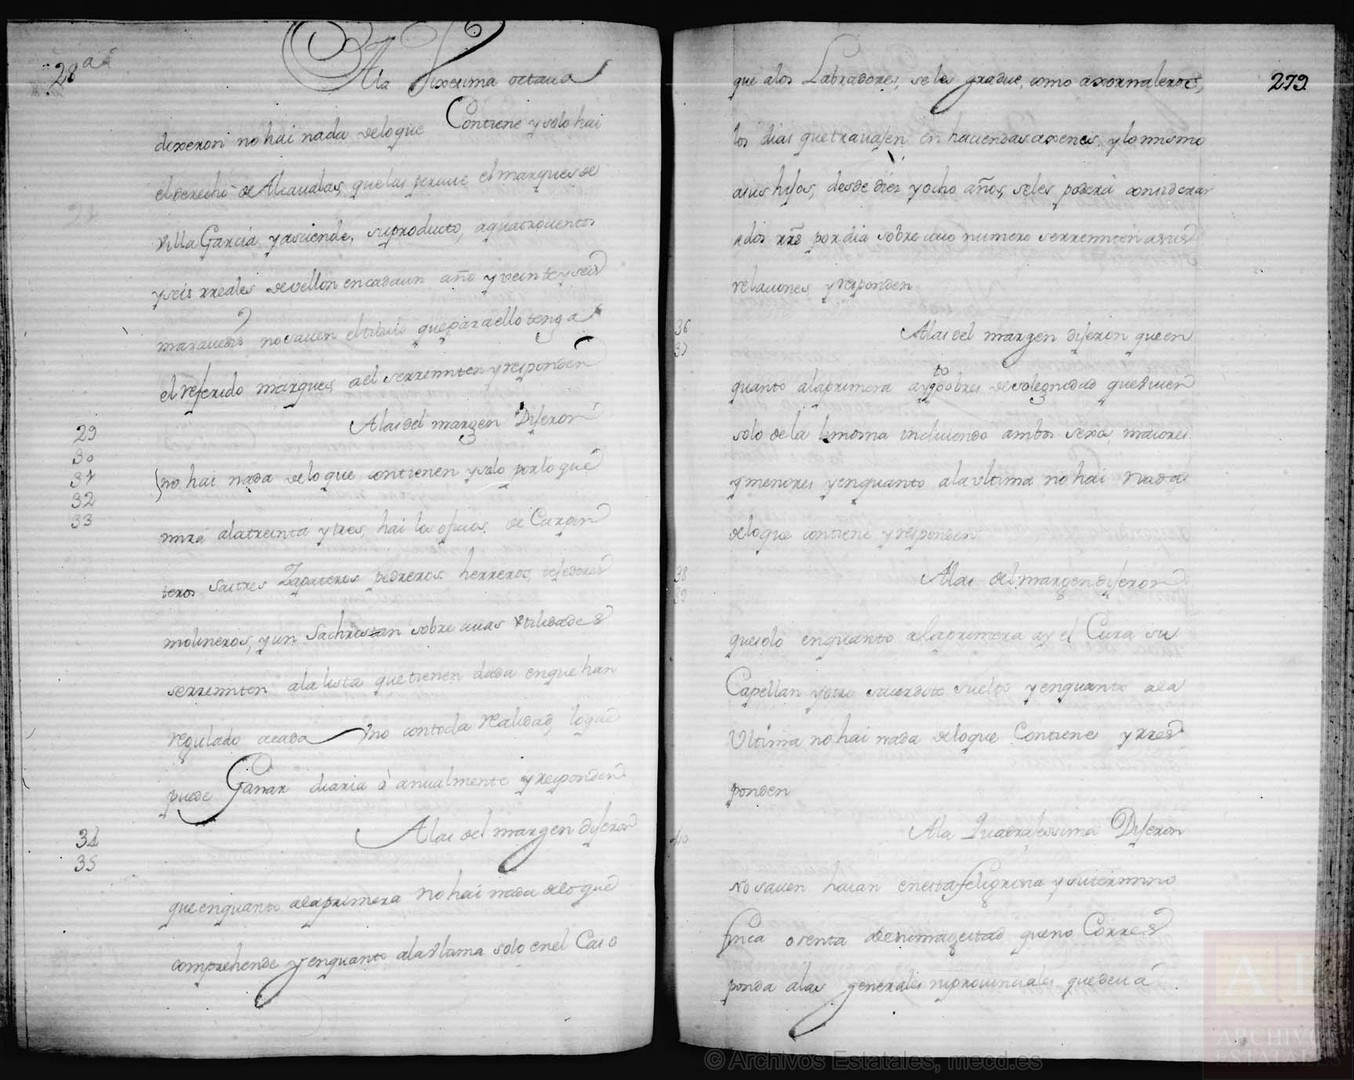 28ª
Ala Vixesima octaua
dixeron no hai nada de lo que Contiene y solo hai
el derecho de Alcaualas, que las perciue el marques de
Villa Garcia, y asciende, su producto, a quatrocientos
y seis rreales de vellon en cada un año y veinte y seis
marauedis no sauen el titulo que para ello tenga
el referido marques, a el se rremiten y responden
29
30
31
32
33
A las del margen Dijeron
no hai nada de lo que contienen y solo por lo que
mira ala treinta y tres, hai los oficios de Carpin
teros Sastres Zapateros pedreros, herreros, tejedores
molineros, y un Sachristan sobre cuias vtilidades
se rremiten ala lista que tienen dada en que han
regulado acada Vno con toda realidad, lo que
puede Ganar diaria ò anualmente y responden
34
35
A las del margen dijeron
que en quanto ala primera no hai nada de lo que
comprehende y en quanto ala vltima solo en el Caso
273
que alos Labradores, se les gradue, como a xornaleros,
los dias que trauajen en haciendas axenas, y lo mismo
a sus hijos, desde diez y ocho años, se les podrà considerar
a dos rrs por dia sobre cuio numero se rremiten a sus
relaciones y responden
36
37
A las del margen dijeron que en
quanto ala primera ay pobres de solegnidad que viuen
solo de la limosna incluiendo ambos sexos, maiores
y menores y en quanto ala vltima no hai nada
de lo que contiene y responden
38
39
A las del margen dijeron
que solo en quanto ala primera ay el Cura su
Capellan y otro sacerdote suelto y en quanto ala
Vltima no hai nada de lo que Contiene y rres
ponden
40
Ala Quadragessima Dijeron
No sauen haian en esta feligresia y su termino
finca o renta de su magestad que no Corres
ponda àlas generales ni prouinciales que deua
© Archivos Estatales, mecd.es
ARCHIVOS
ESTATALES